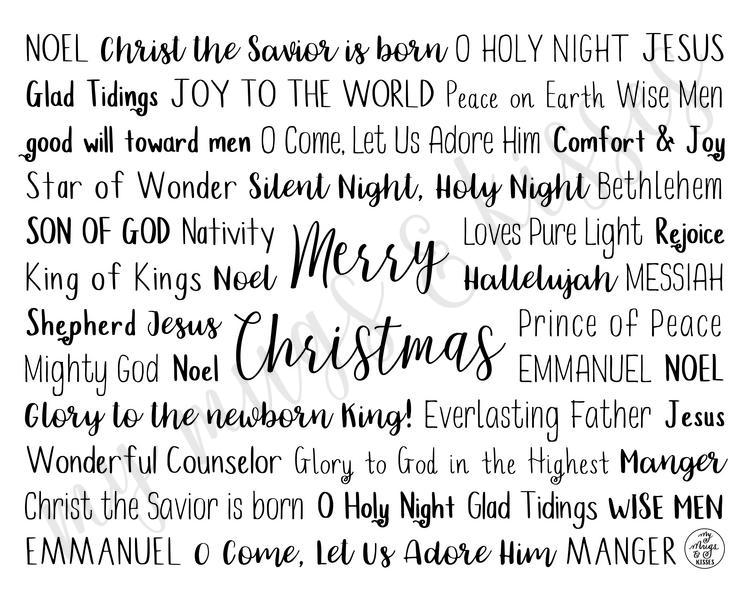 NOEL Christ the Savior is born O HOLY NIGHT JESUS
Glad Tidings JOY TO THE WORLD Peace on Earth Wise Men
good will toward men O Come, Let Us Adore Him Comfort & Joy
Star of Wonder Silent Night, Holy Night Bethlehem
SON OF GOD Nativity Loves Pure Light Rejoice
King of Kings Noel Merry Hallelujah MESSIAH
Shepherd Jesus Christmas Prince of Peace
Mighty God Noel EMMANUEL NOEL
Glory to the newborn King! Everlasting Father Jesus
Wonderful Counselor Glory to God in the Highest Manger
Christ the Savior is born O Holy Night Glad Tidings WISE MEN
EMMANUEL O Come, Let Us Adore Him MANGER
my Mugs & KISSES
my mugs & kisses